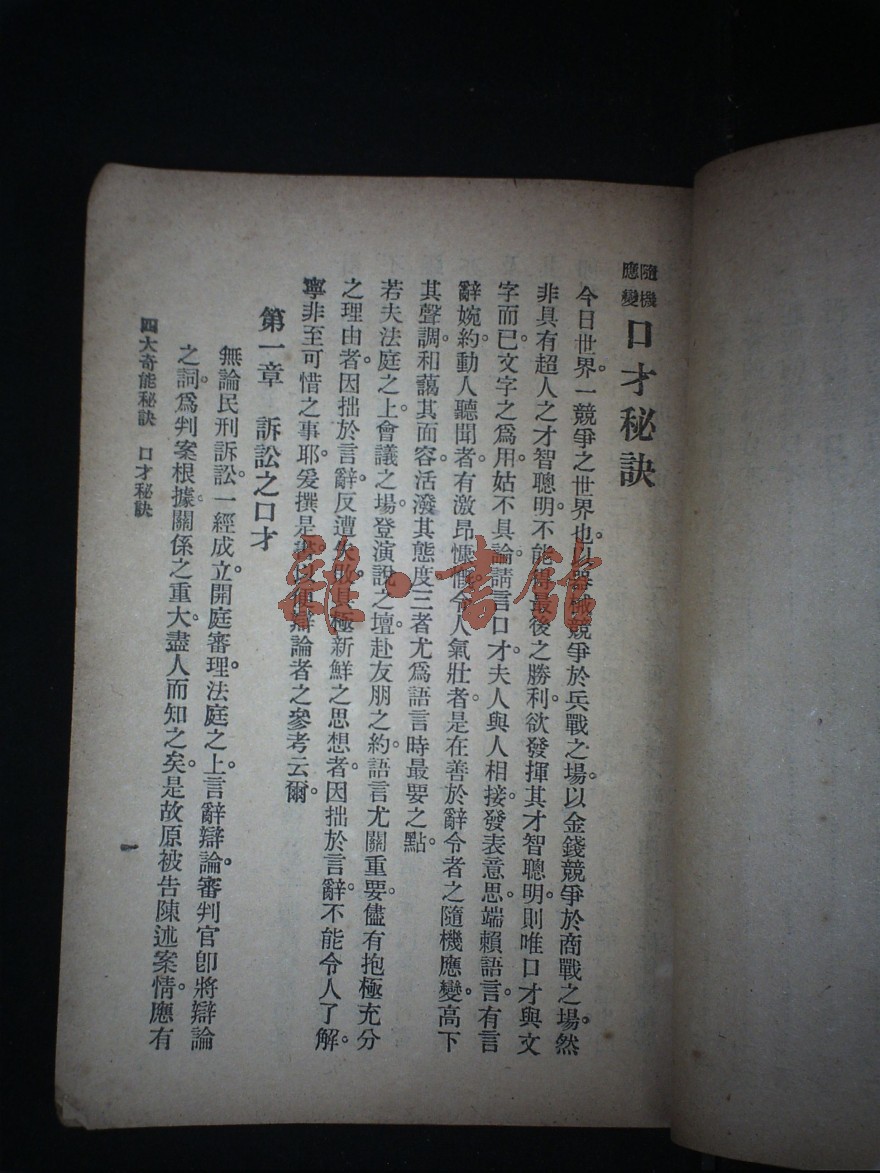 隨機
應變
口才秘訣
今日世界。一競爭之世界也。以器械競爭於兵戰之場。以金錢競爭於商戰之場。然
非具有超人之才智聰明。不能得最後之勝利。欲發揮其才智聰明。則唯口才與文
字而已。文字之爲用。姑不具論。請言口才。夫人與人相接。發表意思。端賴語言。有言
辭婉約。動人聽聞者。有激昂慷慨。令人氣壯者。是在善於辭令者之隨機應變。高下
其聲調。和藹其面容。活潑其態度。三者尤爲語言時最要之點。
若夫法庭之上。會議之場。登演說之壇。赴友朋之約。語言尤關重要。儘有抱極充分
之理由者。因拙於言辭。反遭失敗。具極新鮮之思想者。因拙於言辭。不能令人了解。
寧非至可惜之事耶。爰撰是書。以便辯論者之參考云爾。
第一章 訴訟之口才
無論民刑訴訟。一經成立。開庭審理。法庭之上。言辭辯論。審判官即將辯論
之詞。爲判案根據。關係之重大。盡人而知之矣。是故原被告陳述案情。應有
四大奇能秘訣 口才秘訣
一
雜·書館